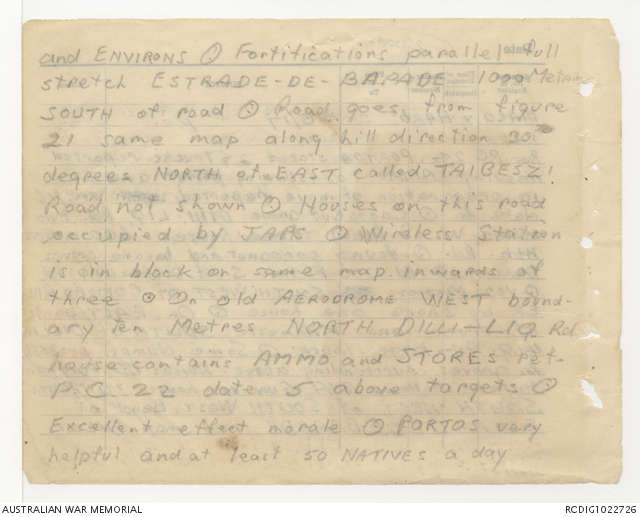 and ENVIRONS ⊙ Fortifications parallel full
stretch ESTRADE-DE-BALADE 1000 Metres
SOUTH of road ⊙ Road goes from figure
21 same map along hill direction 30
degrees NORTH of EAST called TAIBESZI
Road not shown ⊙ Houses on this road
occupied by JAPS ⊙ Wireless Station
is in block on same map inwards of
three ⊙ On old AERODROME WEST bound-
ary ten Metres NORTH DILLI-LIQ Rd
house contains AMMO and STORES ref-
P.C 22 date 5 above targets ⊙
Excellent effect morale ⊙ PORTOS very
helpful and at least 50 NATIVES a day
AUSTRALIAN WAR MEMORIAL
RCDIG1022726